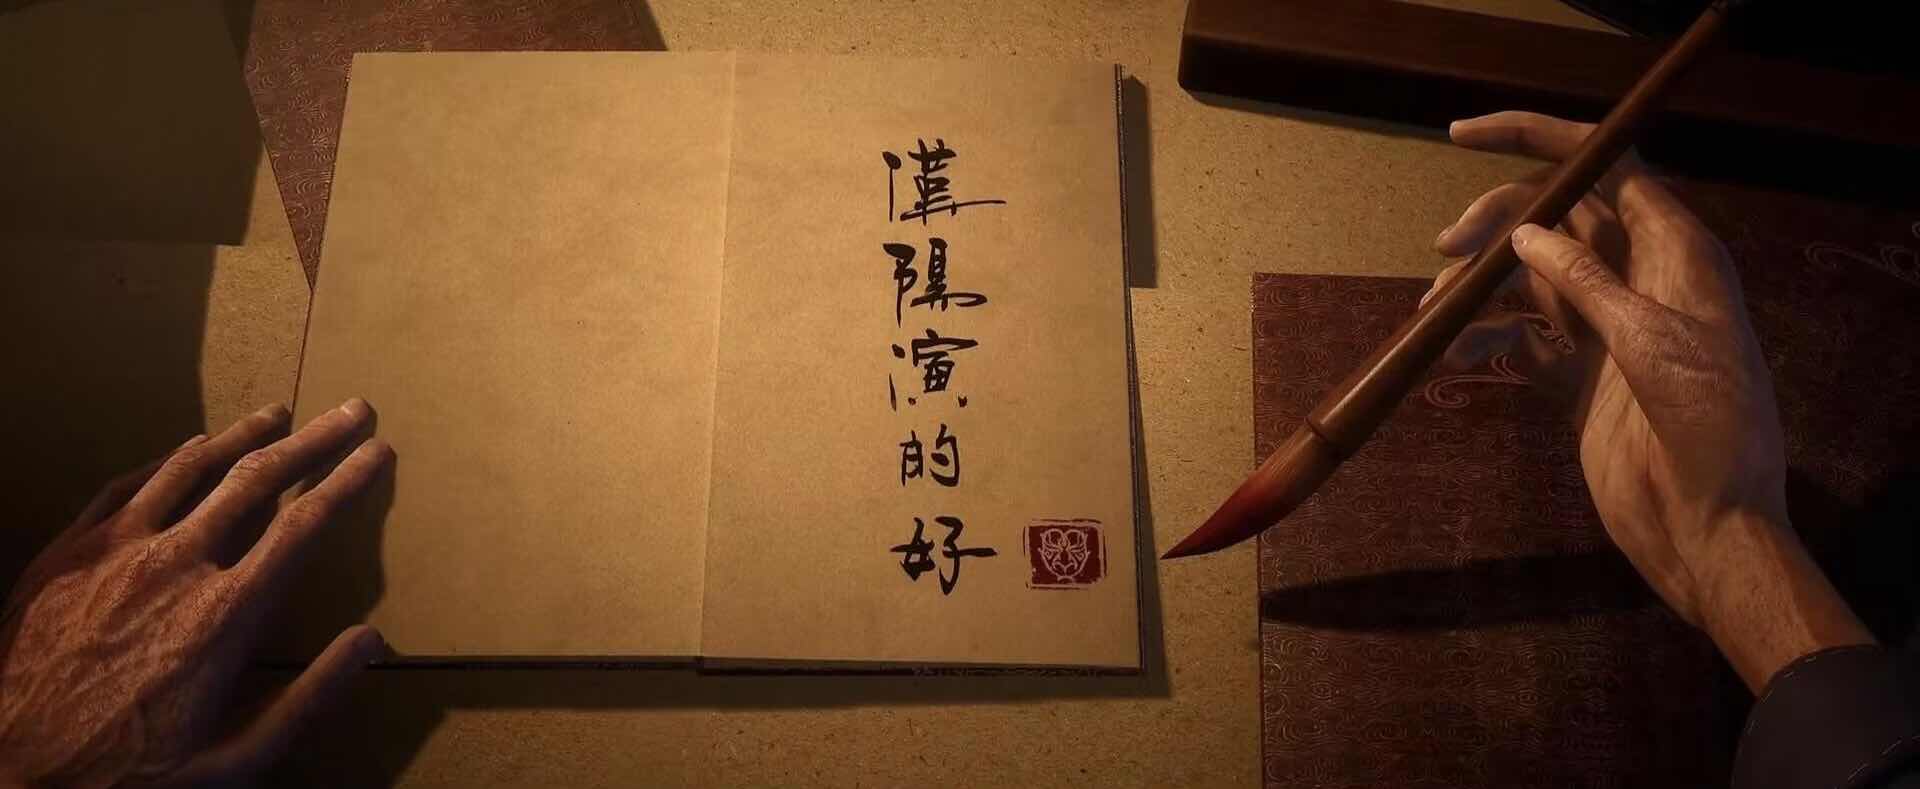 漢陽演的好